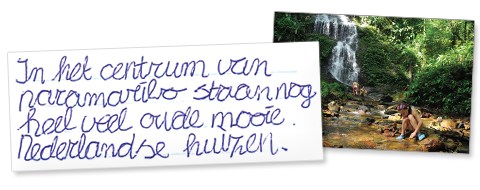 In het centrum van
paramaribo staan nog
heel veel oude mooie.
Nederlandse huizen.